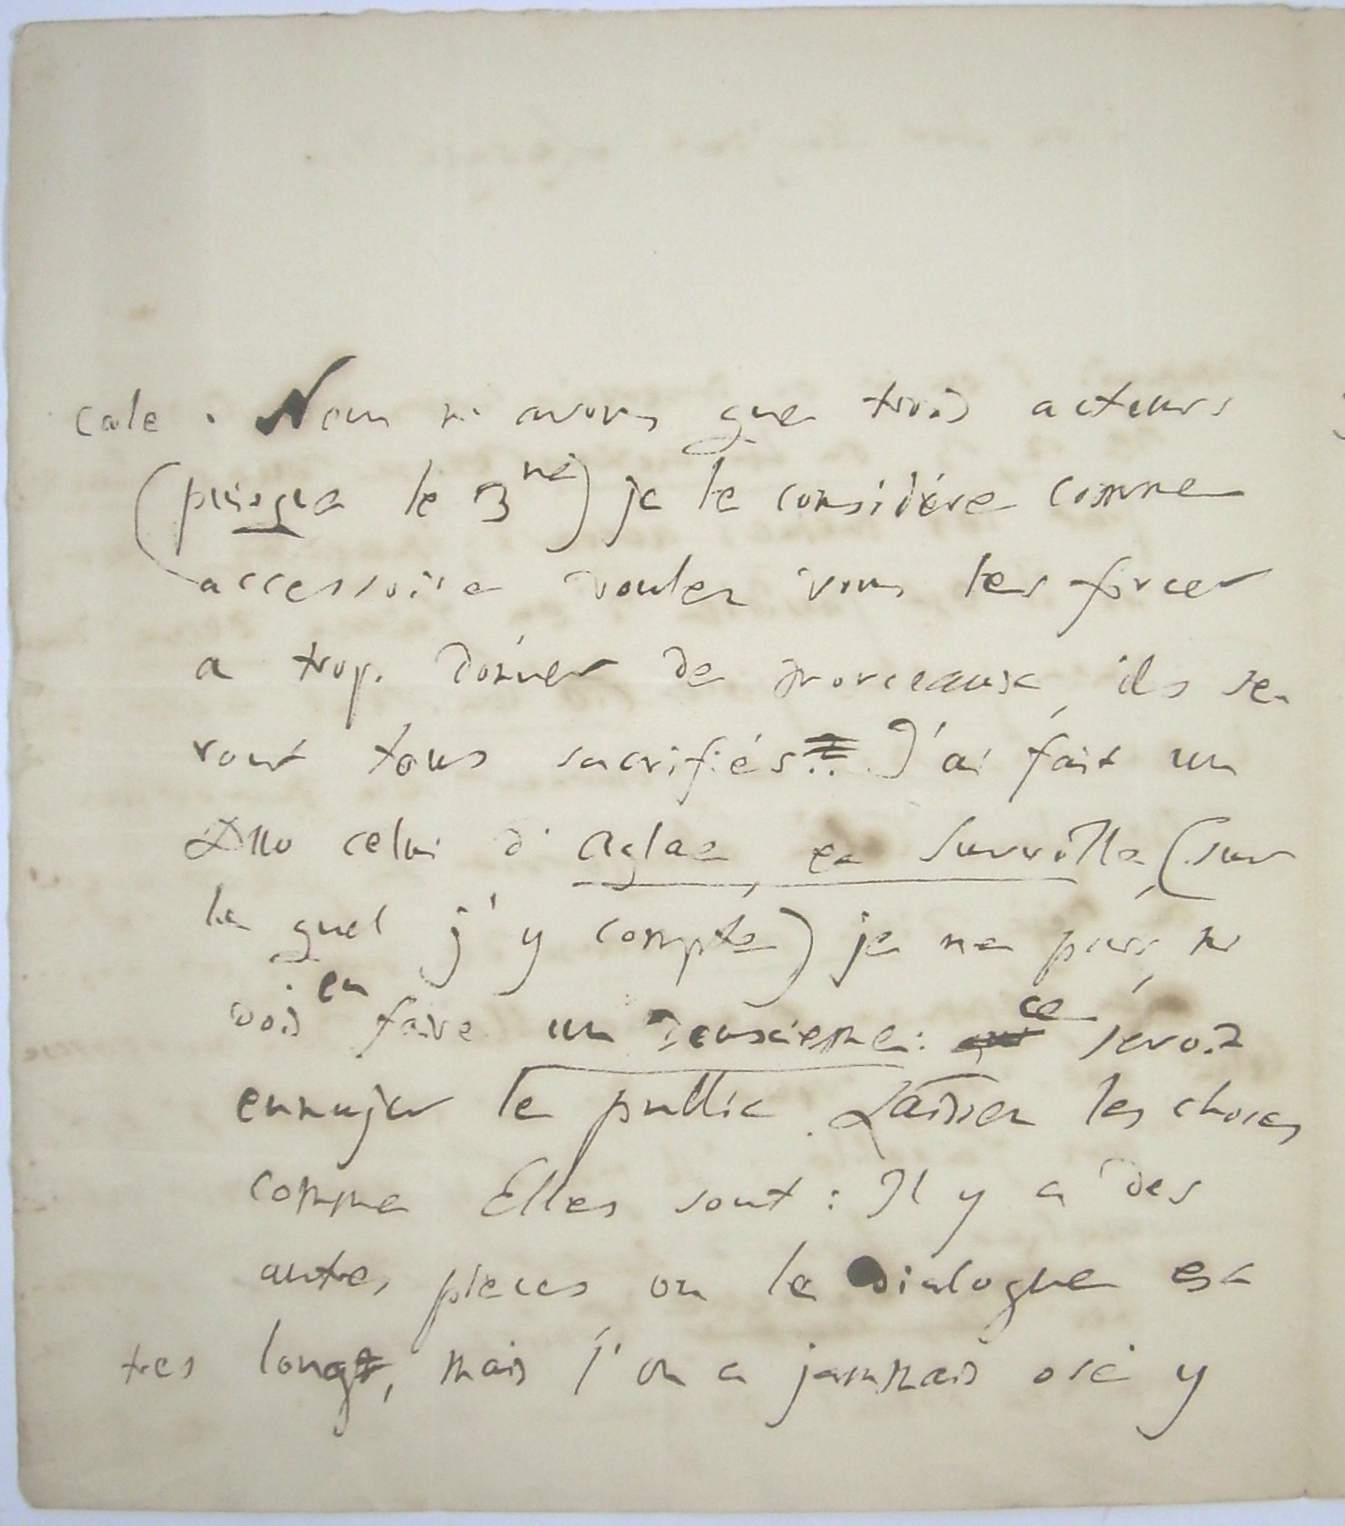 cale. Nous n'avons que trois acteurs
(puisque le 3me) je le considére comme
accessoire voulez vous les forcer
a trop donner de morceaux, ils se-
ront tous sacrifiés!! J'ai fait un
Duo celui d'Aglae et Surville (sur
le quel j'y compte) je ne puis, ni
dois en faire un deuxieme: ce seroit
ennuyer le public. Laissez les choses
comme Elles sont: Il y a des
autres pieces ou le Dialogue est
tres long, mais l'on a jammais osé y